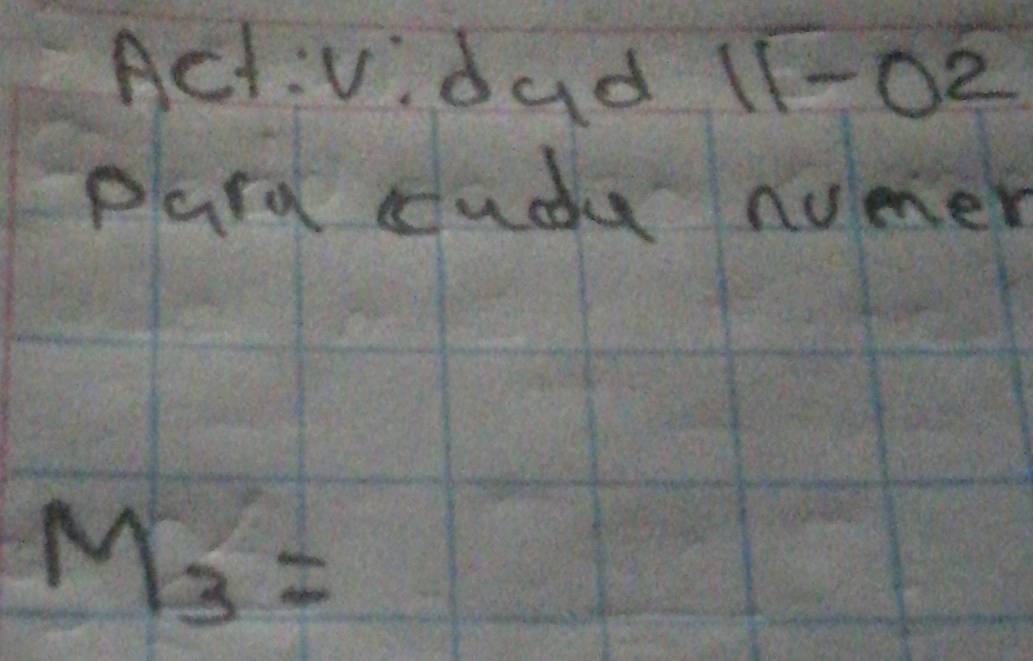 Actividad 11-02
para cada numer
M3=